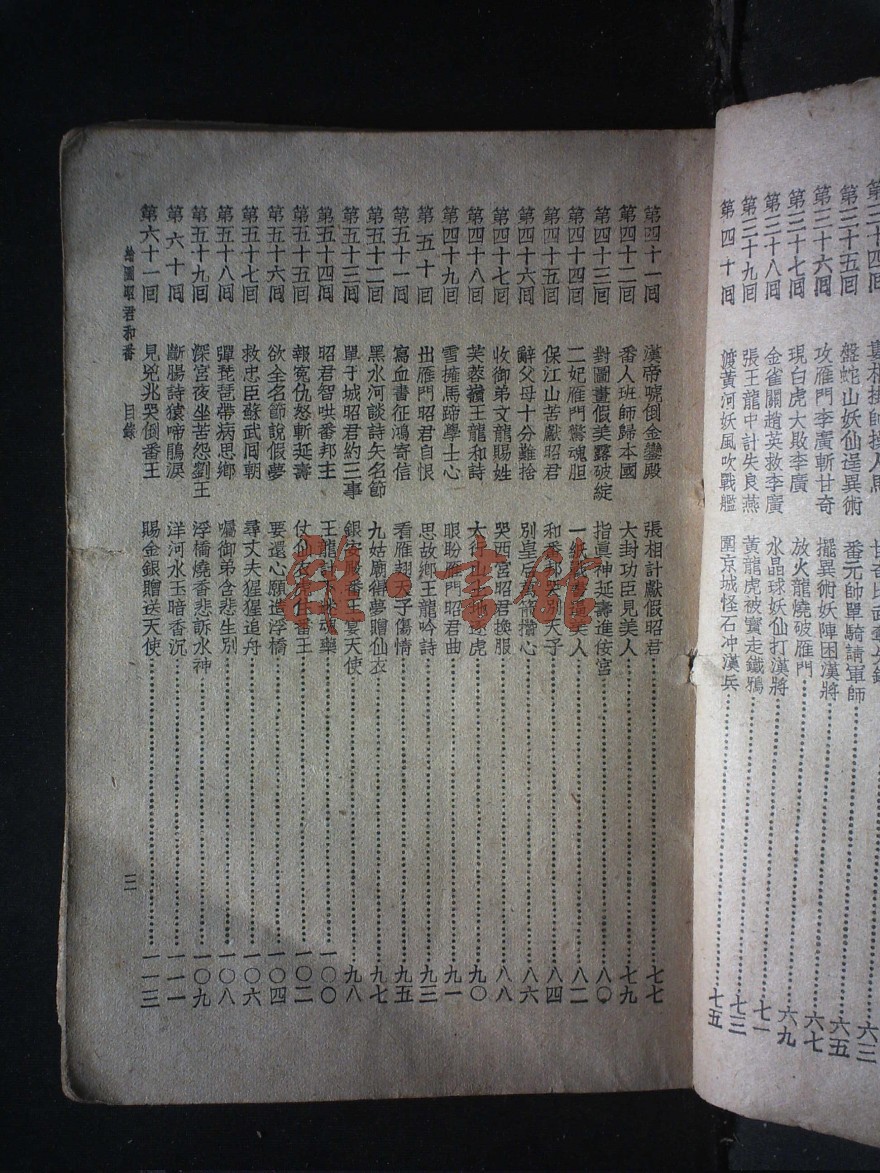 六三
第三十五回 盤蛇山妖仙逞異術 番元帥單騎請軍師 六五
第三十六回 攻雁門李廣斬甘奇 擺異術妖陣困漢將 六七
第三十七回 現白虎大敗李廣 放火龍燒破雁門 六九
第三十八回 金雀關趙英救李廣 水晶球妖仙打漢將 七一
第三十九回 張王龍中計失良燕 黃龍虎被寶走鐵鴉 七三
第四十回 渡黃河妖風吹戰艦 圍京城怪石冲漢兵 七五
第四十一回 漢帝唬倒金鑾殿 張相計獻假昭君 七七
第四十二回 番人班師歸本國 大封功臣見美人 七九
第四十三回 對圖畫假美露破綻 指眞神延壽進佞宮 八〇
第四十四回 二妃雁門驚魂胆 一紙書逼美人 八二
第四十五回 保江山苦獻昭君 和番邦哭別天子 八四
第四十六回 辭父母十分難捨 別皇后箭攢心 八六
第四十七回 收御弟文龍賜姓 哭西宮昭君換服 八八
第四十八回 芙蓉嶺王龍和詩 太行山土地逐虎 九〇
第四十九回 雪擁馬蹄學士心 眼盼雁門昭君曲 九一
第五十回 出雁門昭君自恨 思故鄉王龍吟詩 九三
第五十一回 寫血書征鴻寄信 看雁翅天子傷情 九五
第五十二回 黑水河談詩矢名節 九姑廟得夢贈仙衣 九七
第五十三回 單于城昭君約三事 銀安殿番王宴天使 九八
第五十四回 昭君智哄番邦主 王龍計下迷魂藥 一〇〇
第五十五回 報寃仇怒斬延壽 仗仙衣唬住番王 一〇二
第五十六回 欲全名節說假夢 要還心願造浮橋 一〇四
第五十七回 救忠臣蘇武回朝 尋丈夫猩猩追舟 一〇六
第五十八回 彈琵琶帶病思鄉 囑御弟含悲生別 一〇八
第五十九回 深宮夜坐苦怨劉王 浮橋燒香悲訴水神 一〇九
第六十回 斷腸詩猿啼鵑淚 洋河水玉暗香沉 一一一
第六十一回 見兇兆哭倒番王 賜金銀贈送天使 一一三
繪圖昭君和番 目錄 三